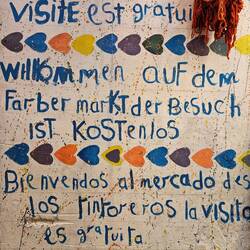 visite est gratui
willkommen auf dem
Farber markt der Besuch
ist kostenlos
Bienvendos al mercado des
los tintoreros la visita
es gratuita